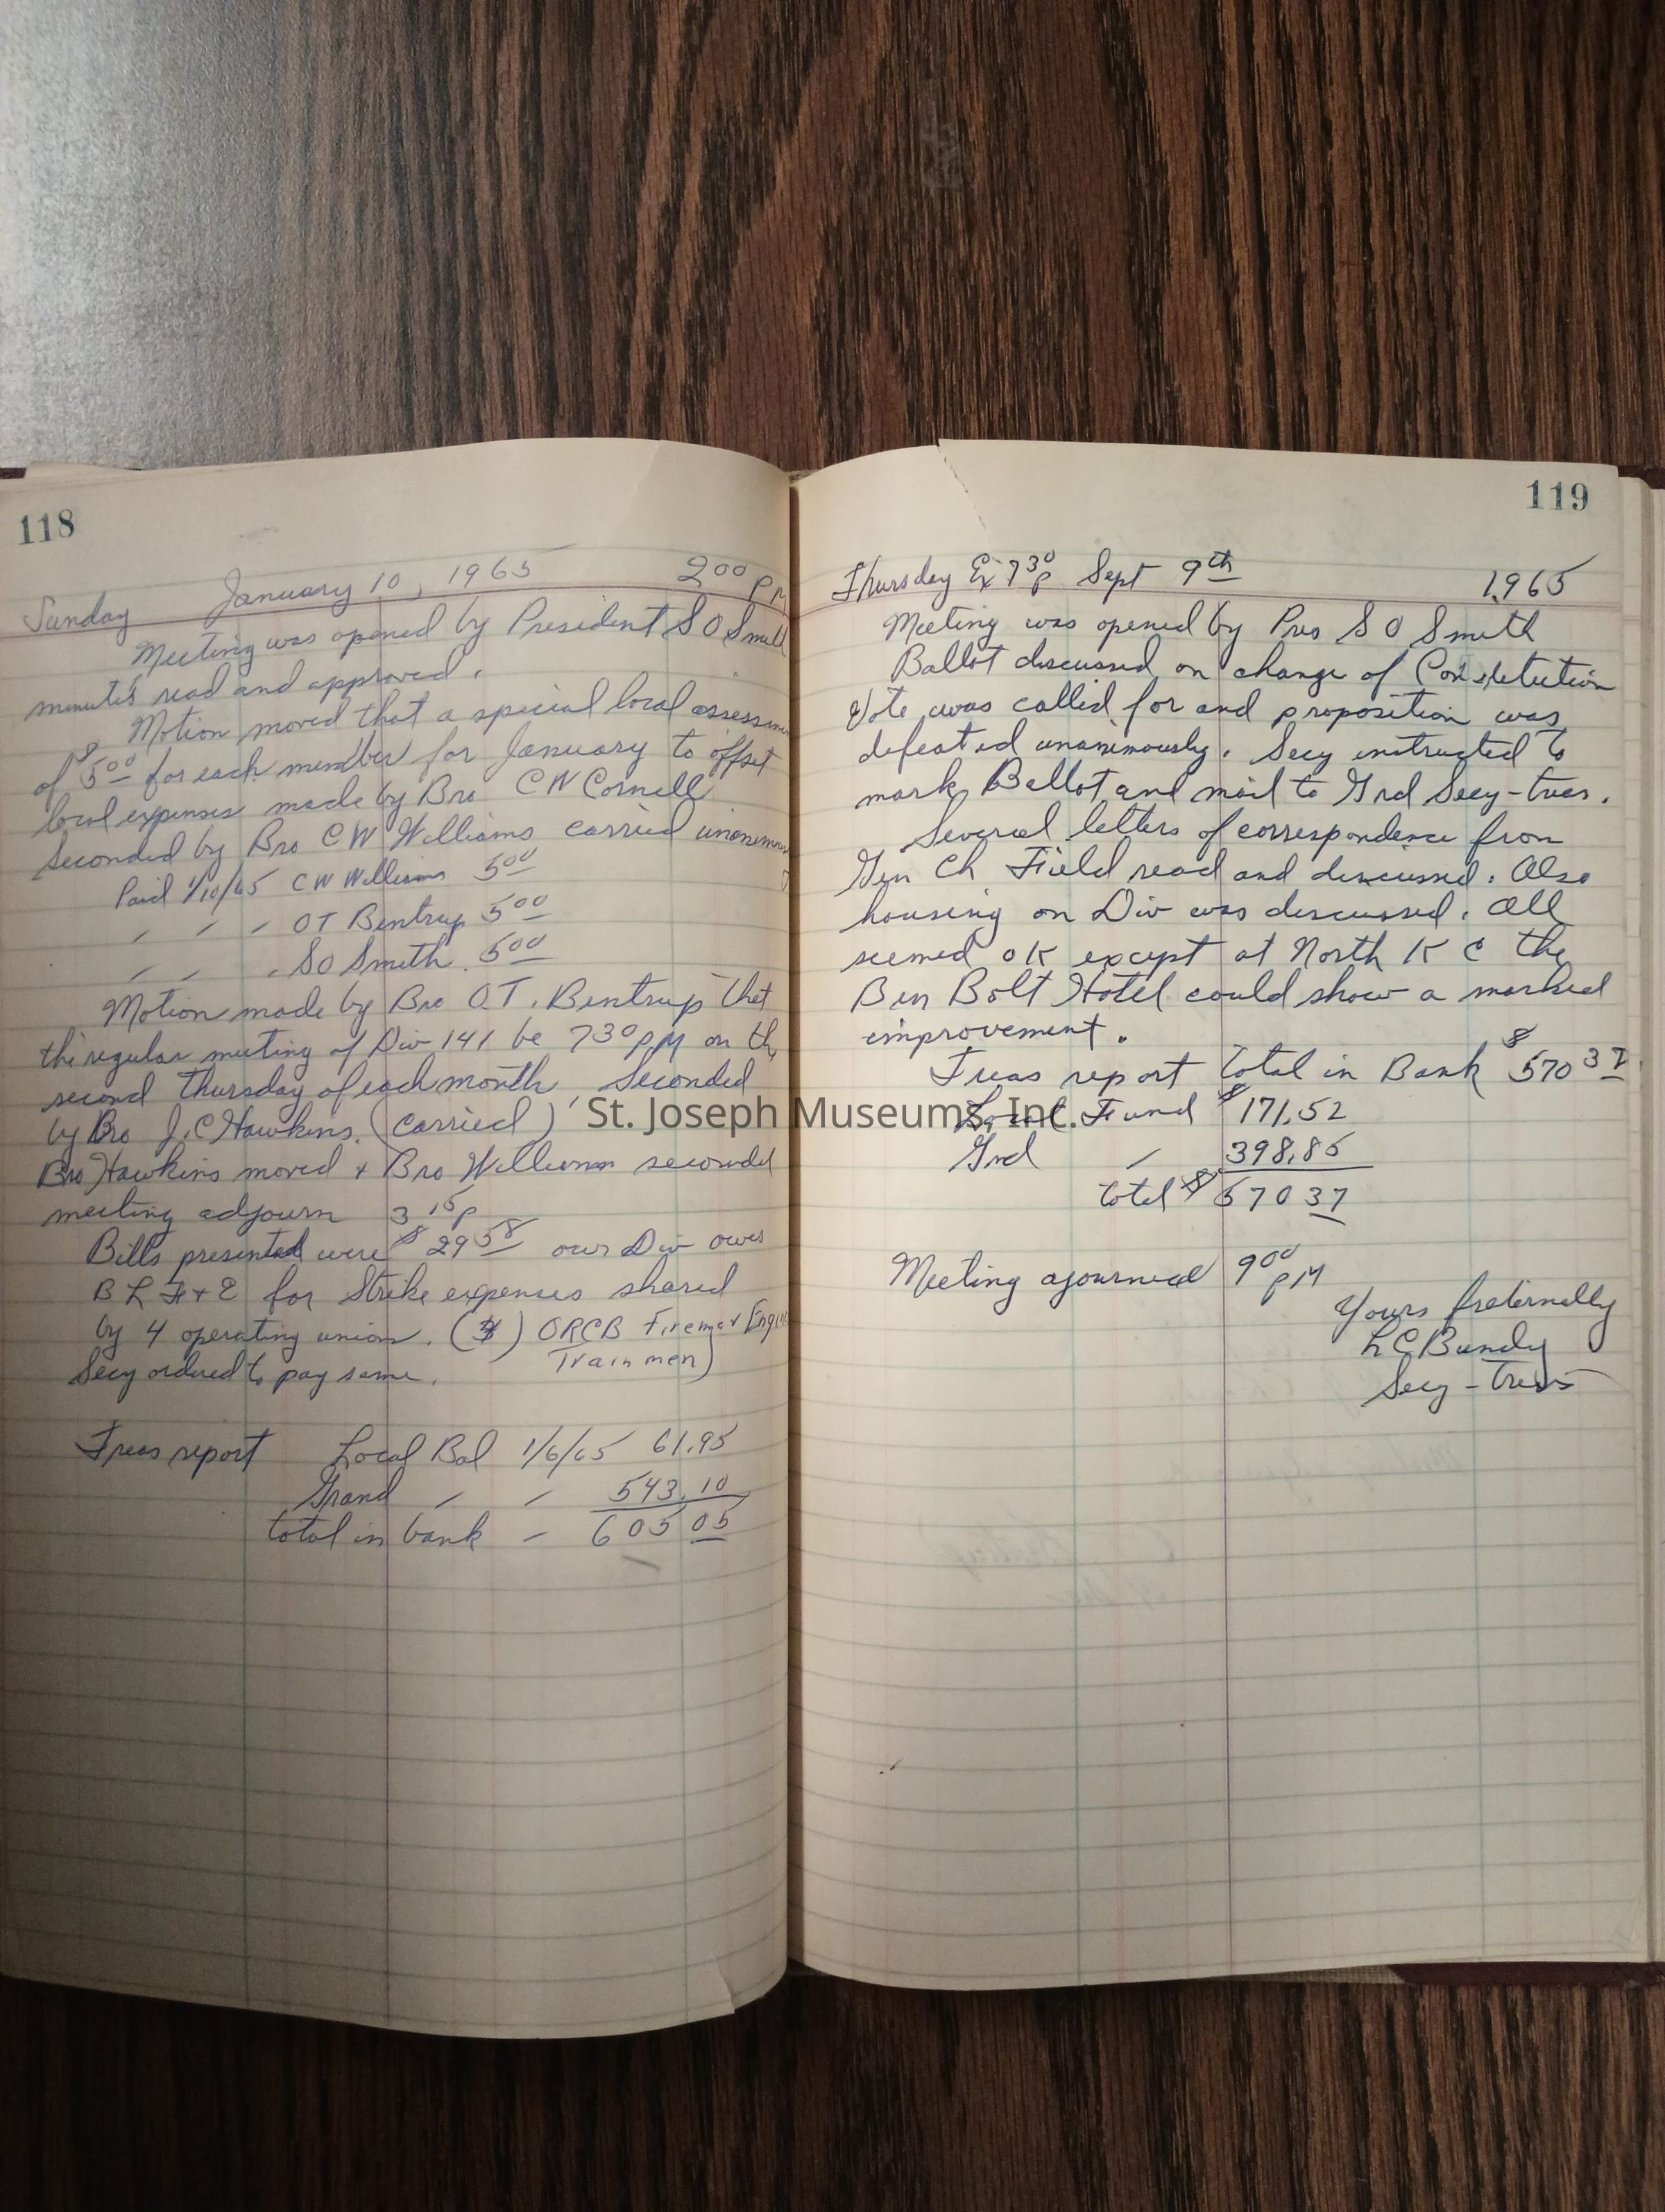 118
Sunday January 10, 1965 2 00 PM
Meeting was opened by President S O Smith
minutes read and approved.
Motion moved that a special local assessm
of $5 00 for each member for January to offset
local expenses made by Bro C W Cornell
Seconded by Bro C W Williams carried unanimou
Paid 1/10/65 C W Williams 5 00
" " " O T Bentrup 5 00
" " " S O Smith 5 00
Motion made by Bro O.T. Bentrup that
the regular meeting of Div 141 be 7 30 PM on th
second Thursday of each month, Seconded
by Bro J.C Hawkins. (Carried)
Bro Hawkins moved + Bro Williams seconded
meeting adjourn 3 15 p
Bills presented were $29 58 our Div owes
B L F + E for Strike expenses shared
by 4 operating unions. ( ) ORCB Fireman Engin
Trainmen)
Secy ordered to pay same.
Treas report Local Bal 1/6/65 61.95
Grand " " 543.10
total in bank - 605 05
119
Thursday Ex 7 30 p Sept 9th 1965
Meeting was opened by Pres S O Smith
Ballot discussed on change of Constetution
Vote was called for and proposition was
defeated unanimously. Secy instructed to
mark Ballot and mail to Grd Secy-treas.
Several letters of correspondence from
Gen Ch Field read and discussed. Also
housing on Div was discussed. All
seemed OK except at North K C the
Ben Bolt Hotel could show a marked
improvement.
Treas report total in Bank $570 37
Local Fund $171.52
Grd " 398.85
total $570 37
Meeting ajourned 9 00 PM
Yours fraternally
L C Bundy
Secy - treas
St. Joseph Museums, Inc.